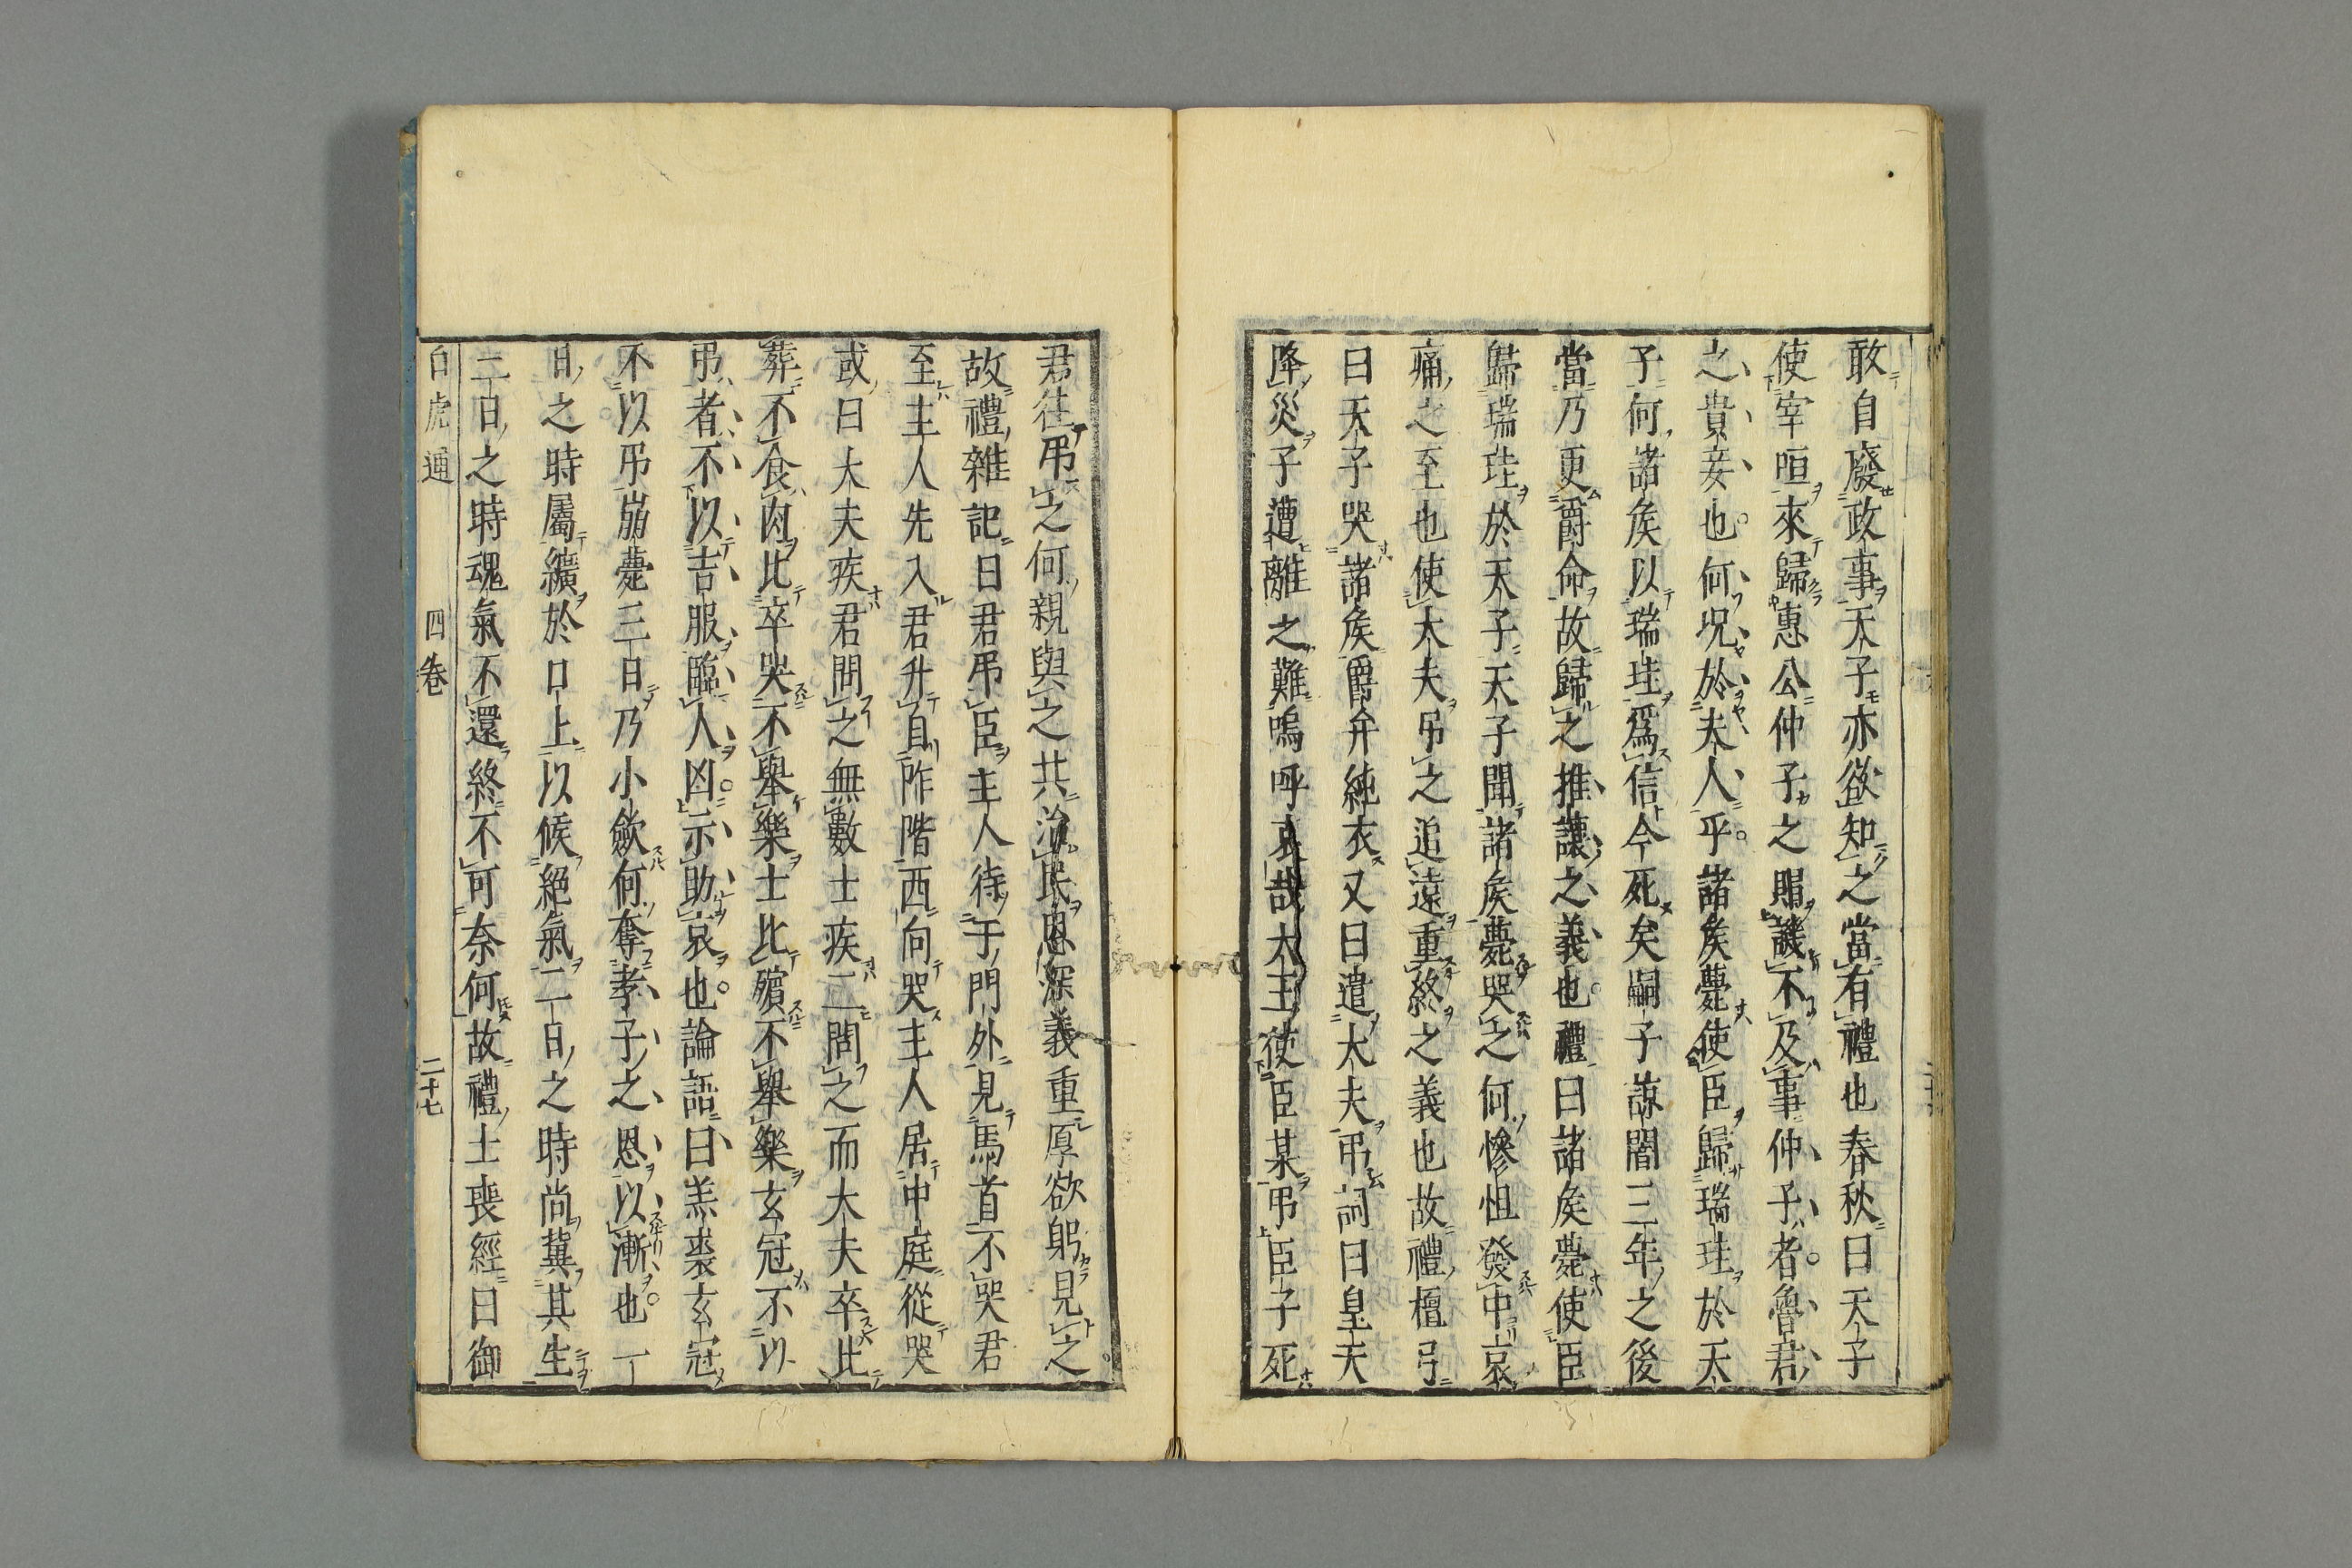 敢自廢政事天子亦欲知之當有禮也春秋曰天子
使宰咺來歸惠公仲子之賵譏不及事仲子者魯君
之貴妾也何况於夫人乎諸侯薨使臣歸瑞珪於天
子何諸侯以瑞珪爲信今死矣嗣子諒闇三年之後
當乃更爵命故歸之推讓之義也禮曰諸侯薨使臣
歸瑞珪於天子天子聞諸侯薨哭之何慘怛發中哀
痛之至也使大夫弔之追遠重終之義也故禮檀弓
曰天子哭諸侯爵弁純衣又曰遣大夫弔詞曰皇天
降災子遭離之難嗚呼哀哉大王使臣某弔臣子死
君往弔之何親與之共治民恩深義重厚欲躬見之
故禮雜記曰君弔臣主人待于門外見馬首不哭君
至主人先入君升自阼階西向哭主人居中庭從哭
或曰大夫疾君問之無數士疾一問之而大夫卒比
葬不食肉比卒哭不舉樂士比殯不舉樂玄冠不以
弔者不以吉服臨人凶示助哀也論語曰羔裘玄冠
不以弔崩薨三日乃小歛何奪孝子之恩以漸也一
日之時屬纊於口上以候絕氣二日之時尚冀其生
三日之時魂氣不還終不可奈何故禮士喪經曰御
白虎通　四卷　二十七